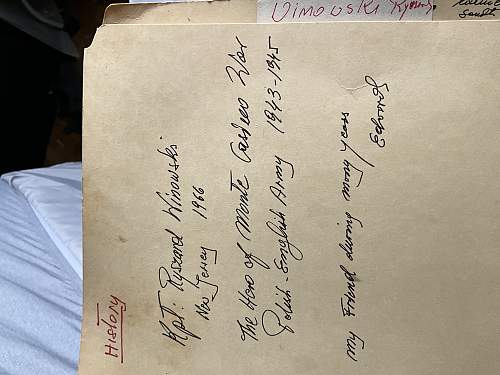 History
Kpt: Ryszard Winowski
New Jersey 1966
The Hero of Monte Cassino War
Polish-English Army 1943-1945
My Friend during many years
Edward